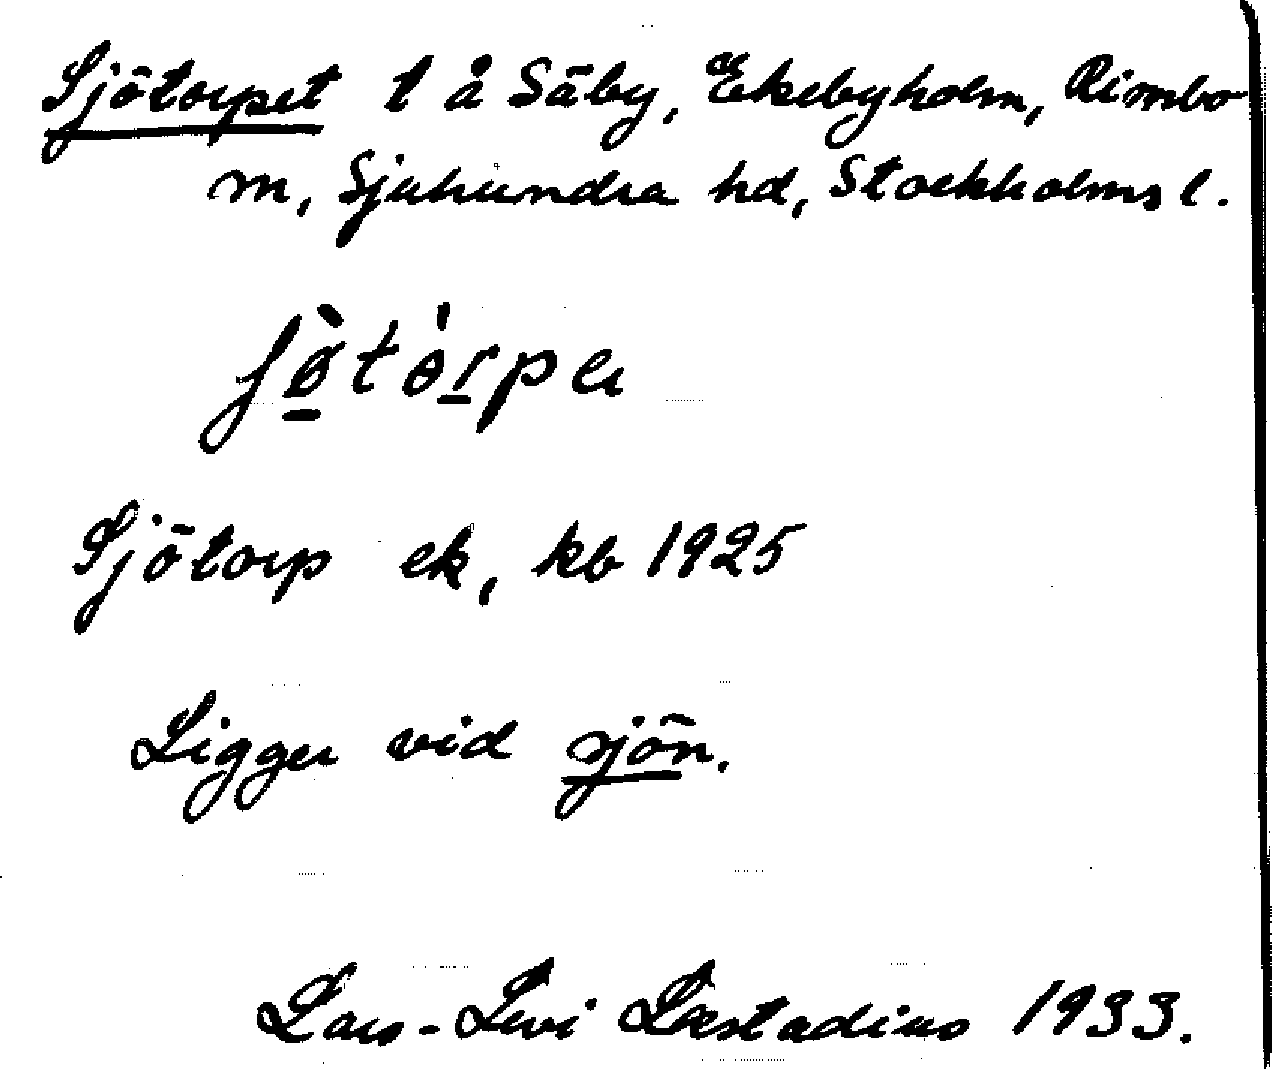 Sjötorpet t å Säby, Ekebyholm, Rimbo
sn, Sjuhundra hd, Stockholms l.
ʃø̀tòrpa
Sjötorp ek, kb 1925
Ligger vid sjön.
Lars-Levi Læstadius 1933.